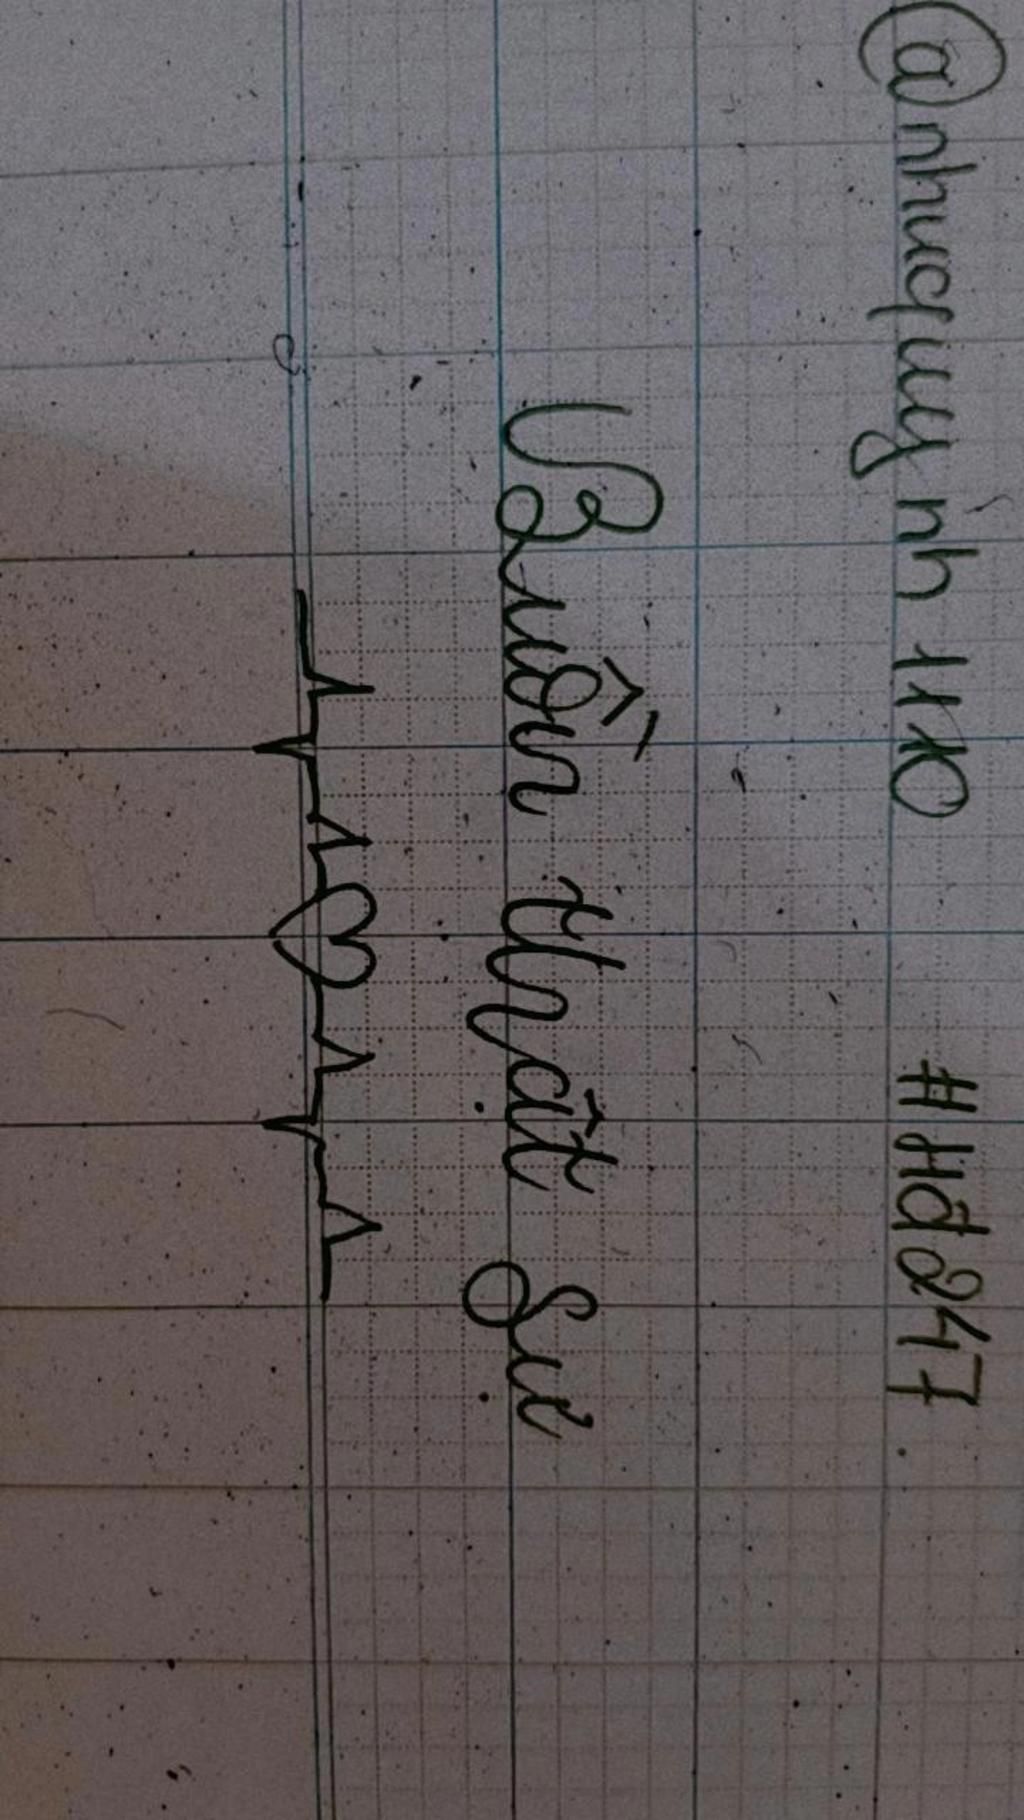 @nhuquynh1110 #Hđ247
Buồn thật sự